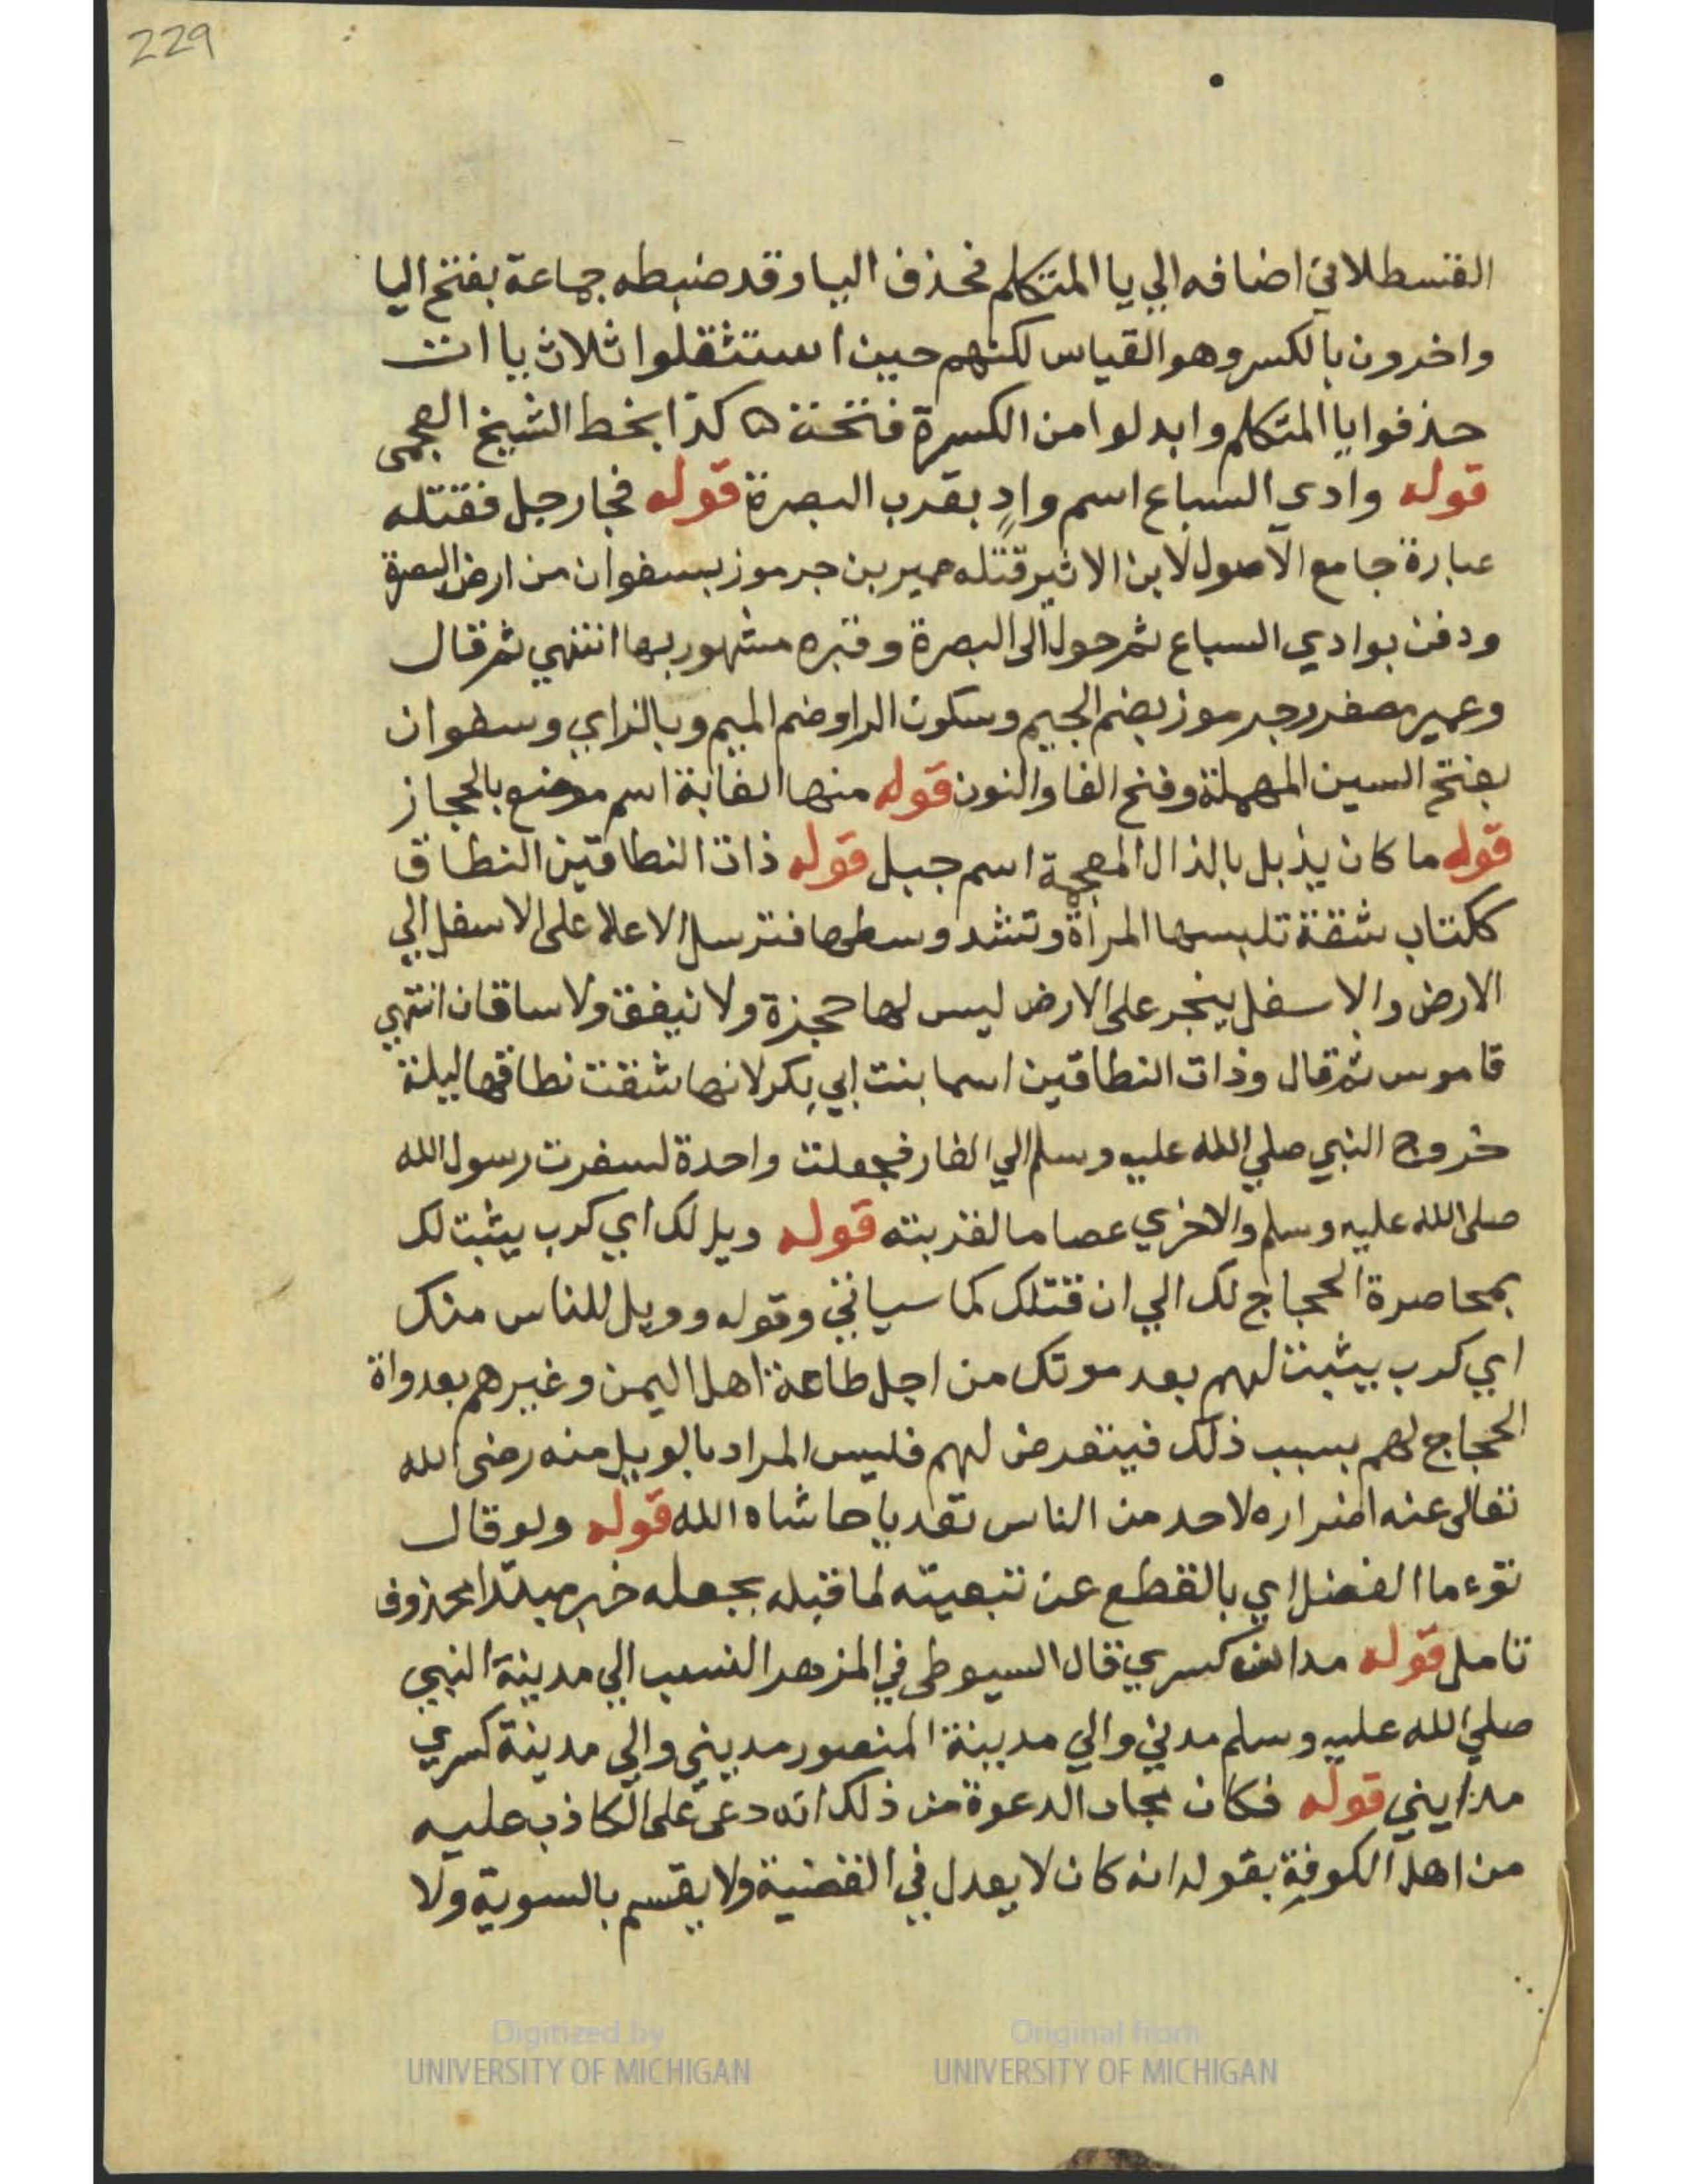 229
القسطلاني اضافه الي يا المتكلم فحذف اليا وقد ضبطه جماعة بفتح اليا
واخرون بالكسر وهو القياس لكنهم حين استثقلوا ثلاث ياات
حذفوا يا المتكلم وابدلوا من الكسرة فتحة ه كذا بخط الشيخ العجمى
قوله وادي السباع اسم وادٍ بقرب البصرة قوله فجا رجل فقتله
عبارة جامع الاصول لابن الاثير قتله عمير بن جرموز بسفوان من ارض البصرة
ودفن بوادي السباع ثم حول الى البصرة وقبره مشهور بها انتهي ثم قال
وعمير مصغر وجرموز بضم الجيم وسكون الرا وضم الميم وبالزاي وسطوان
بفتح السين المهملة وفتح الفا والنون قوله منها الغابة اسم موضع بالحجاز
قوله ما كان يذبل بالذال المعجمة اسم جبل قوله ذات النطاقين النطاق
ككتاب شقة تلبسها المرأة وتشد وسطها فترسل الاعلا على الاسفل الي
الارض والاسفل ينجر على الارض ليس لها حجزة ولا نيفق ولا ساقان انتهي
قاموس ثم قال وذات النطاقين اسما بنت ابي بكر لانها شقت نطاقها ليلة
خروج النبي صلي الله عليه وسلم الي الغار فجعلت واحدة لسفرت رسول الله
صلى الله عليه وسلم والاخري عصاما لقربته قوله ويل لك اي كرب يثبت لك
بمحاصرة الحجاج لك الي ان قتلك كما سياتي وقوله وويل للناس منك
اي كرب يثبت لهم بعد موتك من اجل طاعة اهل اليمن وغيرهم بعد واة
الحجاج لهم بسبب ذلك فيتعرض لهم فليس المراد بالويل منه رضى الله
تعالى عنه اضراره لاحد من الناس تعديا حاشاه الله قوله ولو قال
توءما الفضل اي بالقطع عن تبعيته لما قبله بجعله خبر مبتدا محذوف
تامل قوله مدائن كسري قال السيوطى في المزهر النسب الي مدينة النبي
صلي الله عليه وسلم مدني والي مدينة المنصور مديني والى مدينة كسري
مدايني قوله فكان مجاب الدعوة من ذلك انه دعى على الكاذب عليه
من اهل الكوفة بقوله انه كان لا يعدل في القضية ولا يقسم بالسوية ولا
Digitized by
UNIVERSITY OF MICHIGAN
Original from
UNIVERSITY OF MICHIGAN